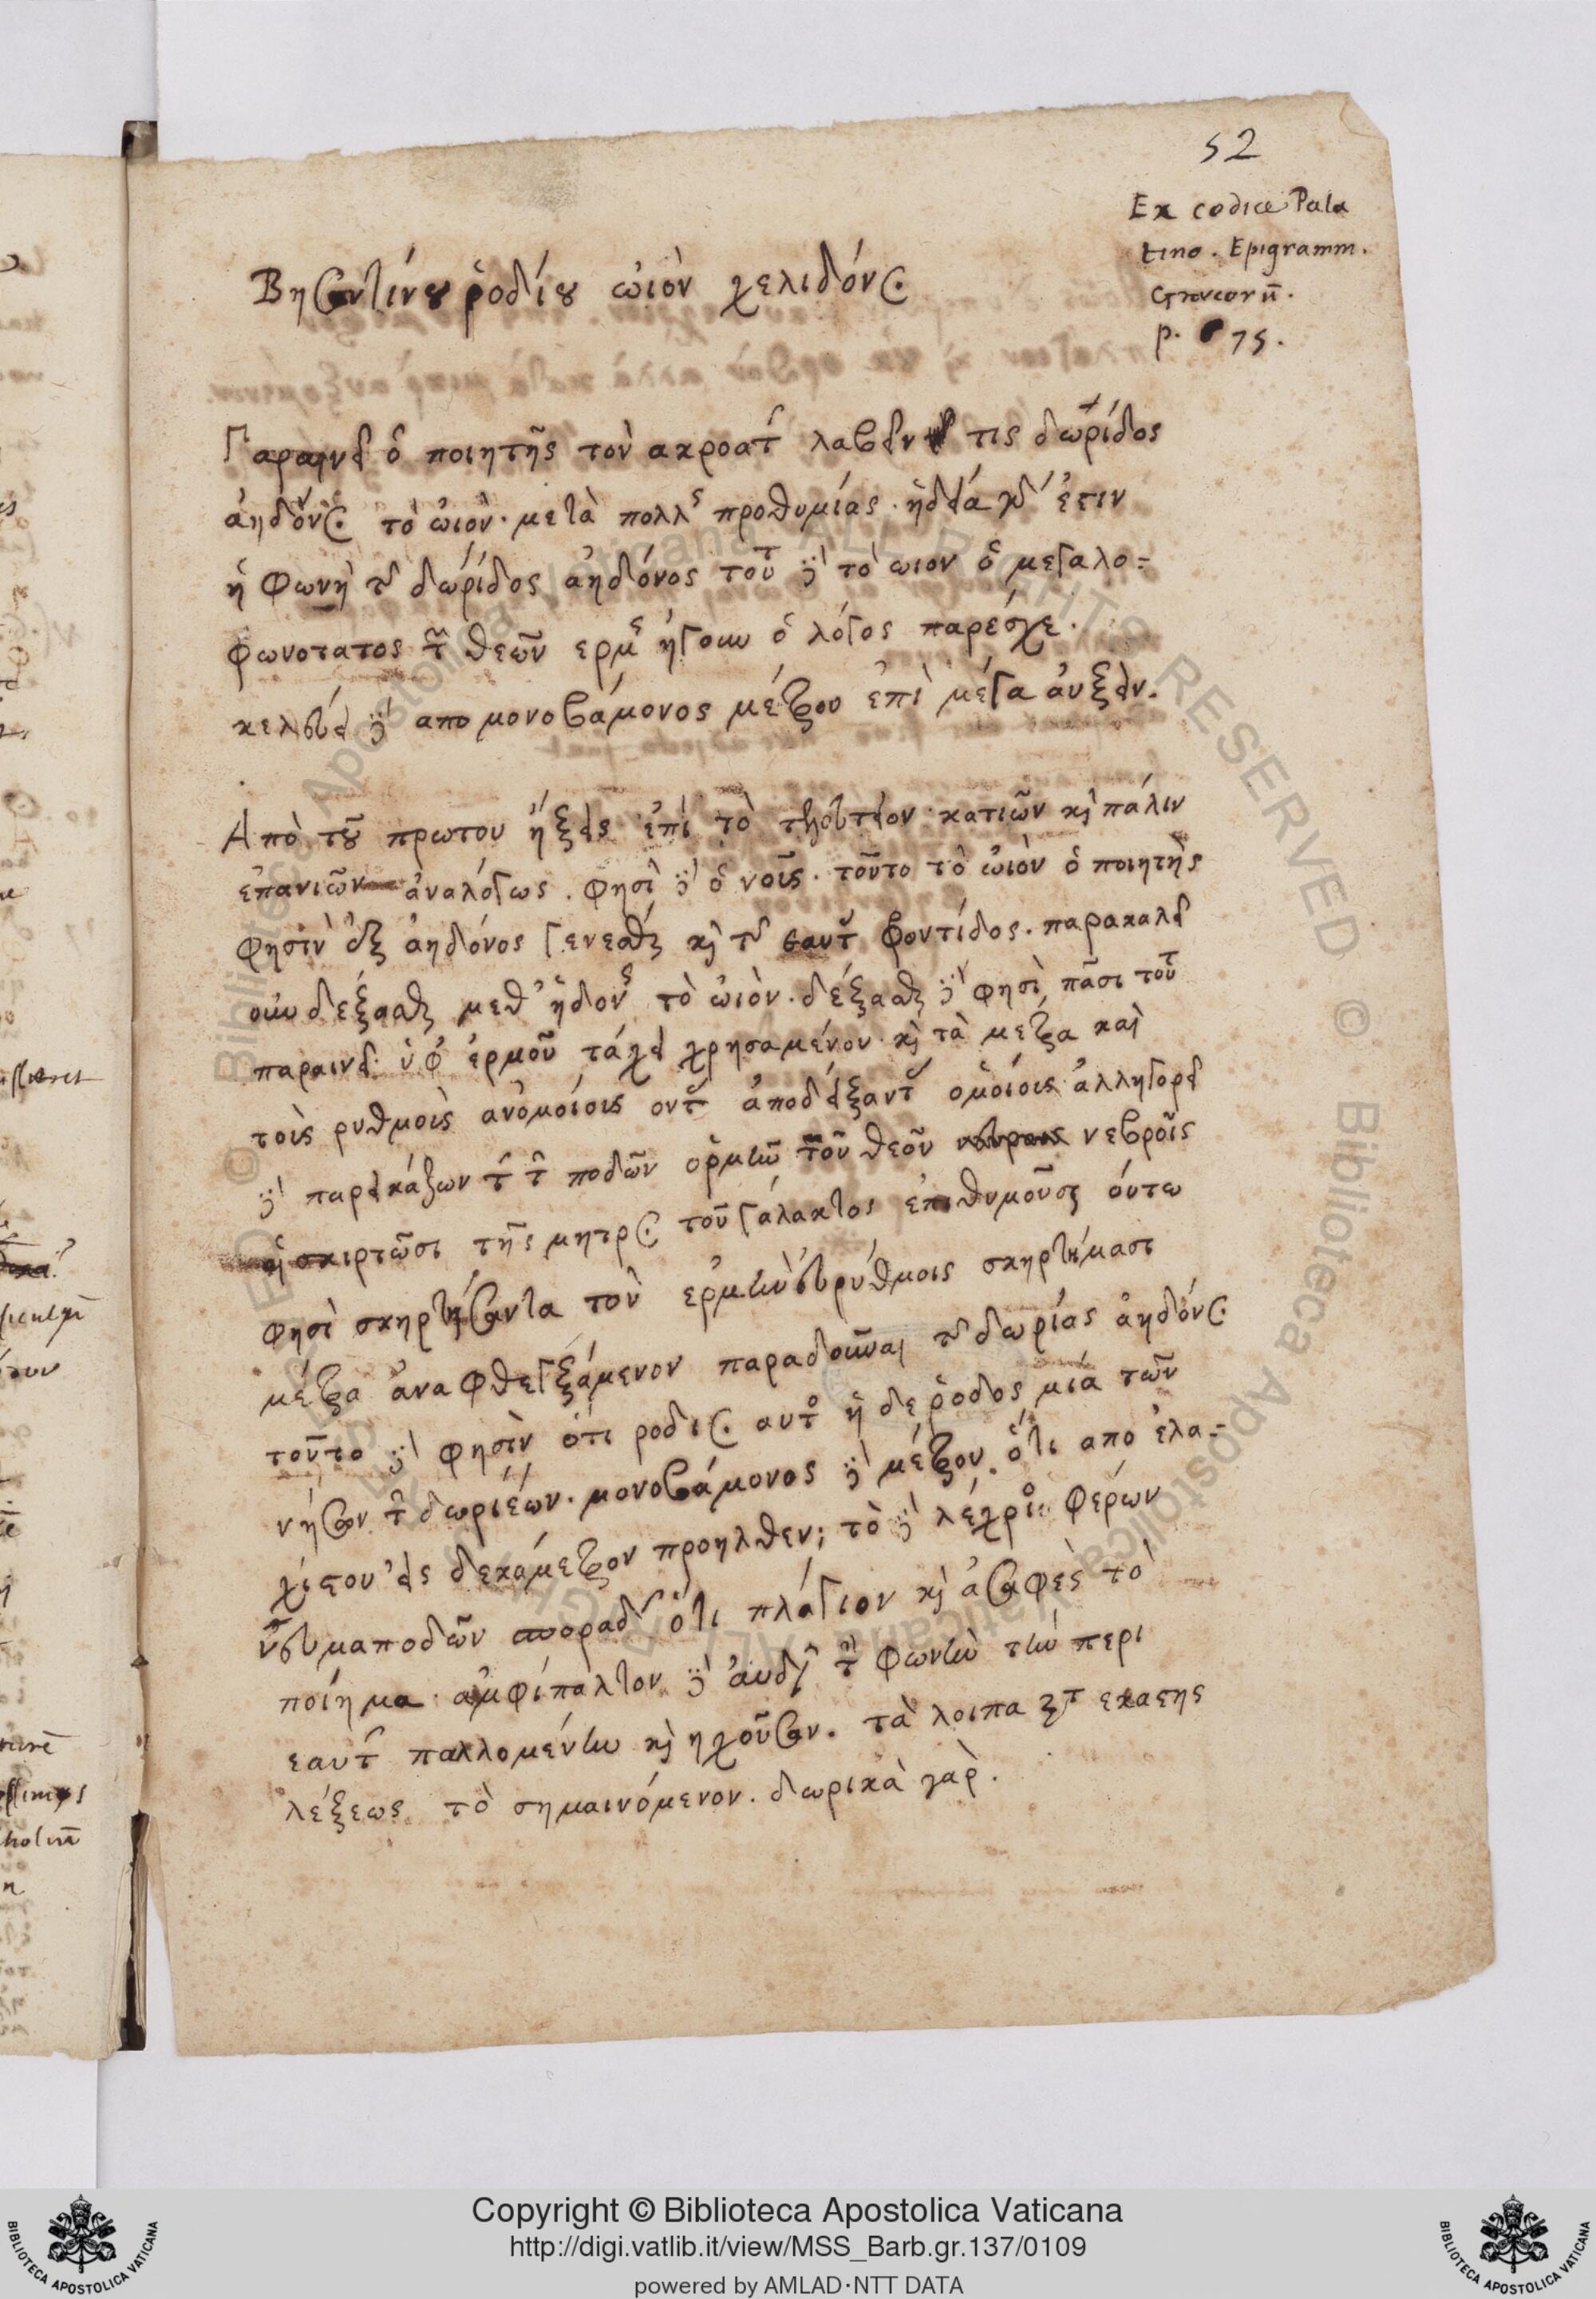 52
Ex codice Pala
tino. Epigramm.
Græcorũ.
p. 75.
Βησαντίνου ῥοδίου ὠιὸν χελιδόνος
Παραινεῖ ὁ ποιητῆς τὸν ακροατὴν λαβεῖν τις δωρίδος
ἀηδόνος τὸ ὠιὸν· μετὰ πολλῆς προθυμίας· ἡδεία γάρ ἐστιν
ἡ φωνὴ τῆς δωρίδος ἀηδόνος τοῦτο δὲ τὸ ωιον ὁ μεγαλο-
φωνοτατος τῶν θεῶν ερμῆς ἤγουν ὁ λόγος παρέσχε·
κελεύει δὲ απο μονοβάμονος μέτρου ἐπὶ μέγα ἀυξεῖν.
Απὸ τοῦ πρωτου ἤξεις ἐπὶ τὸ τελευτεῖον· κατιῶν καὶ πάλιν
ἐπανιῶν ἀναλόγως. φησὶ δὲ ὁ νοῦς· τοῦτο τὸ ὠιὸν ὁ ποιητὴς
φησὶν ἐξ ἀηδόνος γενεσθαι καὶ τῆς εαυτοῦ φροντίδος· παρακαλεῖ
οὖν δέξασθαι μεθ' ἡδονῆς τὸ ὠιὸν· δέξασθαι δὲ φησὶ πᾶσι τοῦτο
παραινεῖ· ὑφ' ἑρμοῦ τάχει χρησαμένου· καὶ τὰ μετρα καὶ
τοὶς ρυθμοὶς ανομοίοις αποδείξαντος ομοίοις ἀλληγορεῖ
δὲ παρεικάζων τὴν τῶν ποδῶν ορμὴν τοῦ θεοῦ νεβροῖς
οἳ σκιρτῶσι τῆς μητρος τοῦ γάλακτος ἐπιθυμοῦσι ούτω
φησὶ σκηρτήσαντα τὸν ερμὴν ευρύθμοις σκηρτήμασι
μέτρα ἀναφθεγξάμενον παραδοῦναι τῆς δωρίας ἀηδόνος
τοῦτο δὲ φησὶν ότι ροδιος αυτὸς ἡ δε ῥοδος μιά τῶν
νήσων τῶν δωριέων· μονοβάμονος δὲ μέτρου· ὅτι απο ἐλα-
χίστου εἰς δεκάμετρον προηλθεν; τὸ δὲ λέχριος φέρων
νεῦμα ποδῶν σποραδην ὅτι πλάγιον καὶ ἀσαφὲς τὸ
ποίημα· αμφίπαλτον δὲ ἀυδὴν τὴν φωνὴν τὴν περι
εαυτὴν παλλομένην καὶ ηχοῦσαν. τὰ λοιπα κατ εκαστης
λέξεως τὸ σημαινόμενον. δωρικὰ γαρ.
Copyright © Biblioteca Apostolica Vaticana
http://digi.vatlib.it/view/MSS_Barb.gr.137/0109
powered by AMLAD·NTT DATA